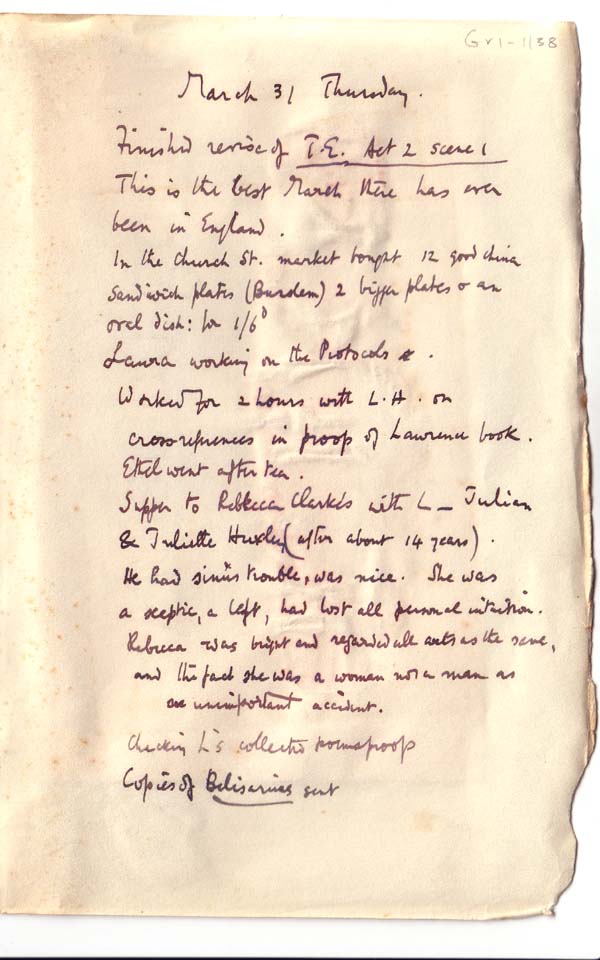 Gv1-1/38
March 31 Thursday.
Finished revise of T.E. Act 2 scene 1
This is the best March there has ever
been in England.
In the Church St. market bought 12 good china
sandwich plates (Burslem) 2 bigger plates & an
oval dish: for 1/6d
Laura working on the Protocols.
Worked for 2 hours with L.H. on
cross-references in proofs of Lawrence book.
Ethel went after tea.
Supper to Rebecca Clarke's with L – Julian
& Juliette Huxley (after about 14 years).
He had sinus trouble, was nice. She was
a sceptic, a left, had lost all personal intuition.
Rebecca was bright and regarded all arts as the same,
and the fact she was a woman not a man as
an unimportant accident.
Checking L's collected poems proofs
Copies of Belisarius sent